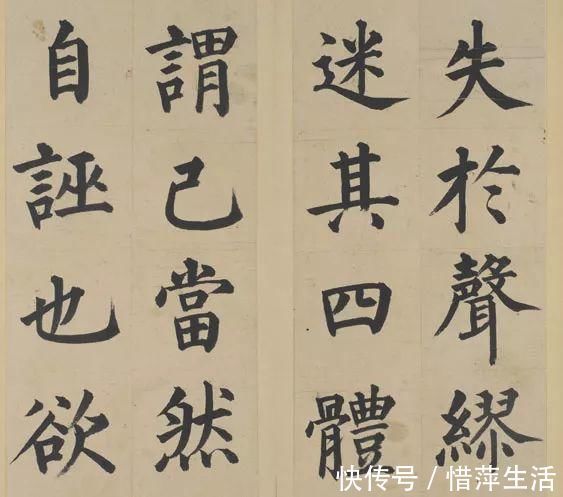 失於聲繆
迷其四體
謂己當然
自誣也欲
快传号 / 惜萍生活